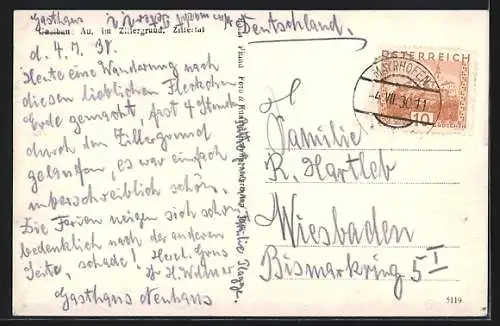 Gasthaus
Gasthaus Au, im Zillergrund, Zillertal
d. 4.7.31.
Heute eine Wanderung nach
diesem lieblichen Fleckchen
Erde gemacht, fast 4 Stunden
durch den Zillergrund
gelaufen, es war einfach
unbeschreiblich schön.
Die Ferien neigen sich schon
bedenklich nach der anderen
Seite, schade! Herzl. Grus
Gasthaus Neuhaus
Deutschland.
ÖSTERREICH
MAYRHOFEN
10
Familie
R. Hartleb
Wiesbaden
Bismarkring 5 I
5119